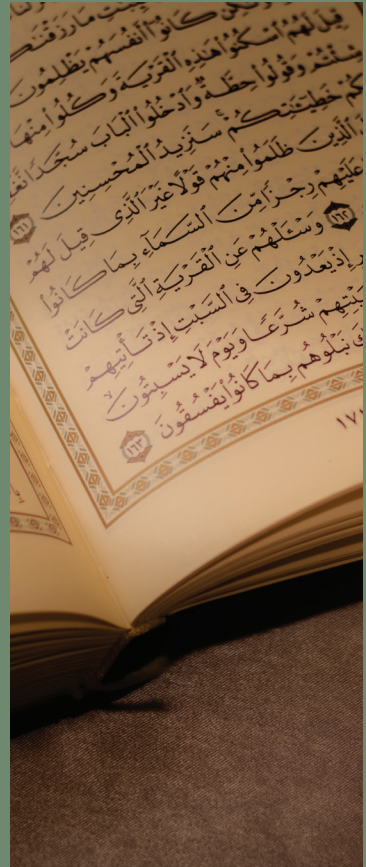 مَا رَزَقْنَـٰ
كَانُوٓا۟ أَنفُسَهُمْ يَظْلِمُونَ
قِيلَ لَهُمُ ٱسْكُنُوا۟ هَـٰذِهِ ٱلْقَرْيَةَ وَكُلُوا۟ مِنْهَا
شِئْتُمْ وَقُولُوا۟ حِطَّةٌ وَٱدْخُلُوا۟ ٱلْبَابَ سُجَّدًا
خَطِيٓـَٔـٰتِكُمْ ۚ سَنَزِيدُ ٱلْمُحْسِنِينَ ١٦١
ٱلَّذِينَ ظَلَمُوا۟ مِنْهُمْ قَوْلًا غَيْرَ ٱلَّذِى قِيلَ لَهُمْ
عَلَيْهِمْ رِجْزًا مِّنَ ٱلسَّمَآءِ بِمَا كَانُوا۟
١٦٢ وَسْـَٔلْهُمْ عَنِ ٱلْقَرْيَةِ ٱلَّتِى كَانَتْ
إِذْ يَعْدُونَ فِى ٱلسَّبْتِ إِذْ تَأْتِيهِمْ
شُرَّعًا وَيَوْمَ لَا يَسْبِتُونَ ۙ
نَبْلُوهُم بِمَا كَانُوا۟ يَفْسُقُونَ ١٦٣